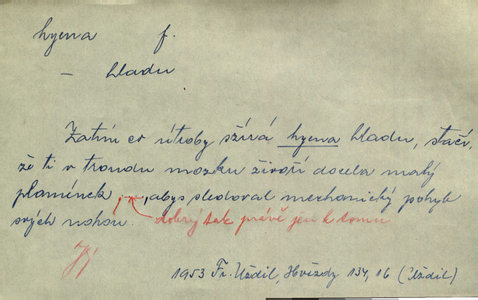 hyena f.
– hladu
Zatím co útroby sžírá hyena hladu, stačí,
že ti v troudu mozku živoří docela malý
plamínek, abys sledoval mechanický pohyb
svých nohou. dobrý tak právě jen k tomu
1953 Fr. Uždil, Hvězdy 134, 16 (Uždil)